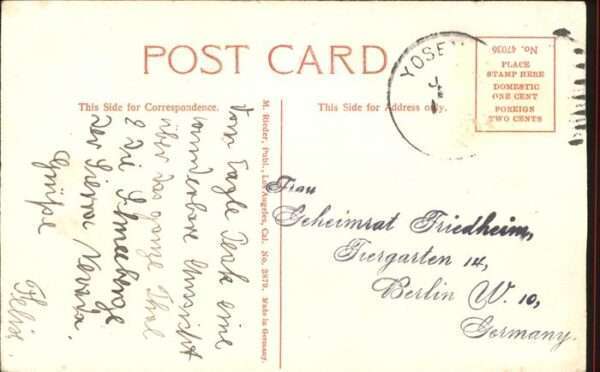 POST CARD
This Side for Correspondence.
This Side for Address only.
No. 47036
PLACE
STAMP HERE
DOMESTIC
ONE CENT
FOREIGN
TWO CENTS
YOSE
Vom Eagle Peak eine
wunderbare Aussicht
über das ganze Thal
& die Schneeberge
der Sierra Nevada.
Grüße
Felix.
M. Rieder, Publ., Los Angeles, Cal. No. 3879. Made in Germany.
Frau
Geheimrat Friedheim,
Tiergarten 14,
Berlin W. 10,
Germany.